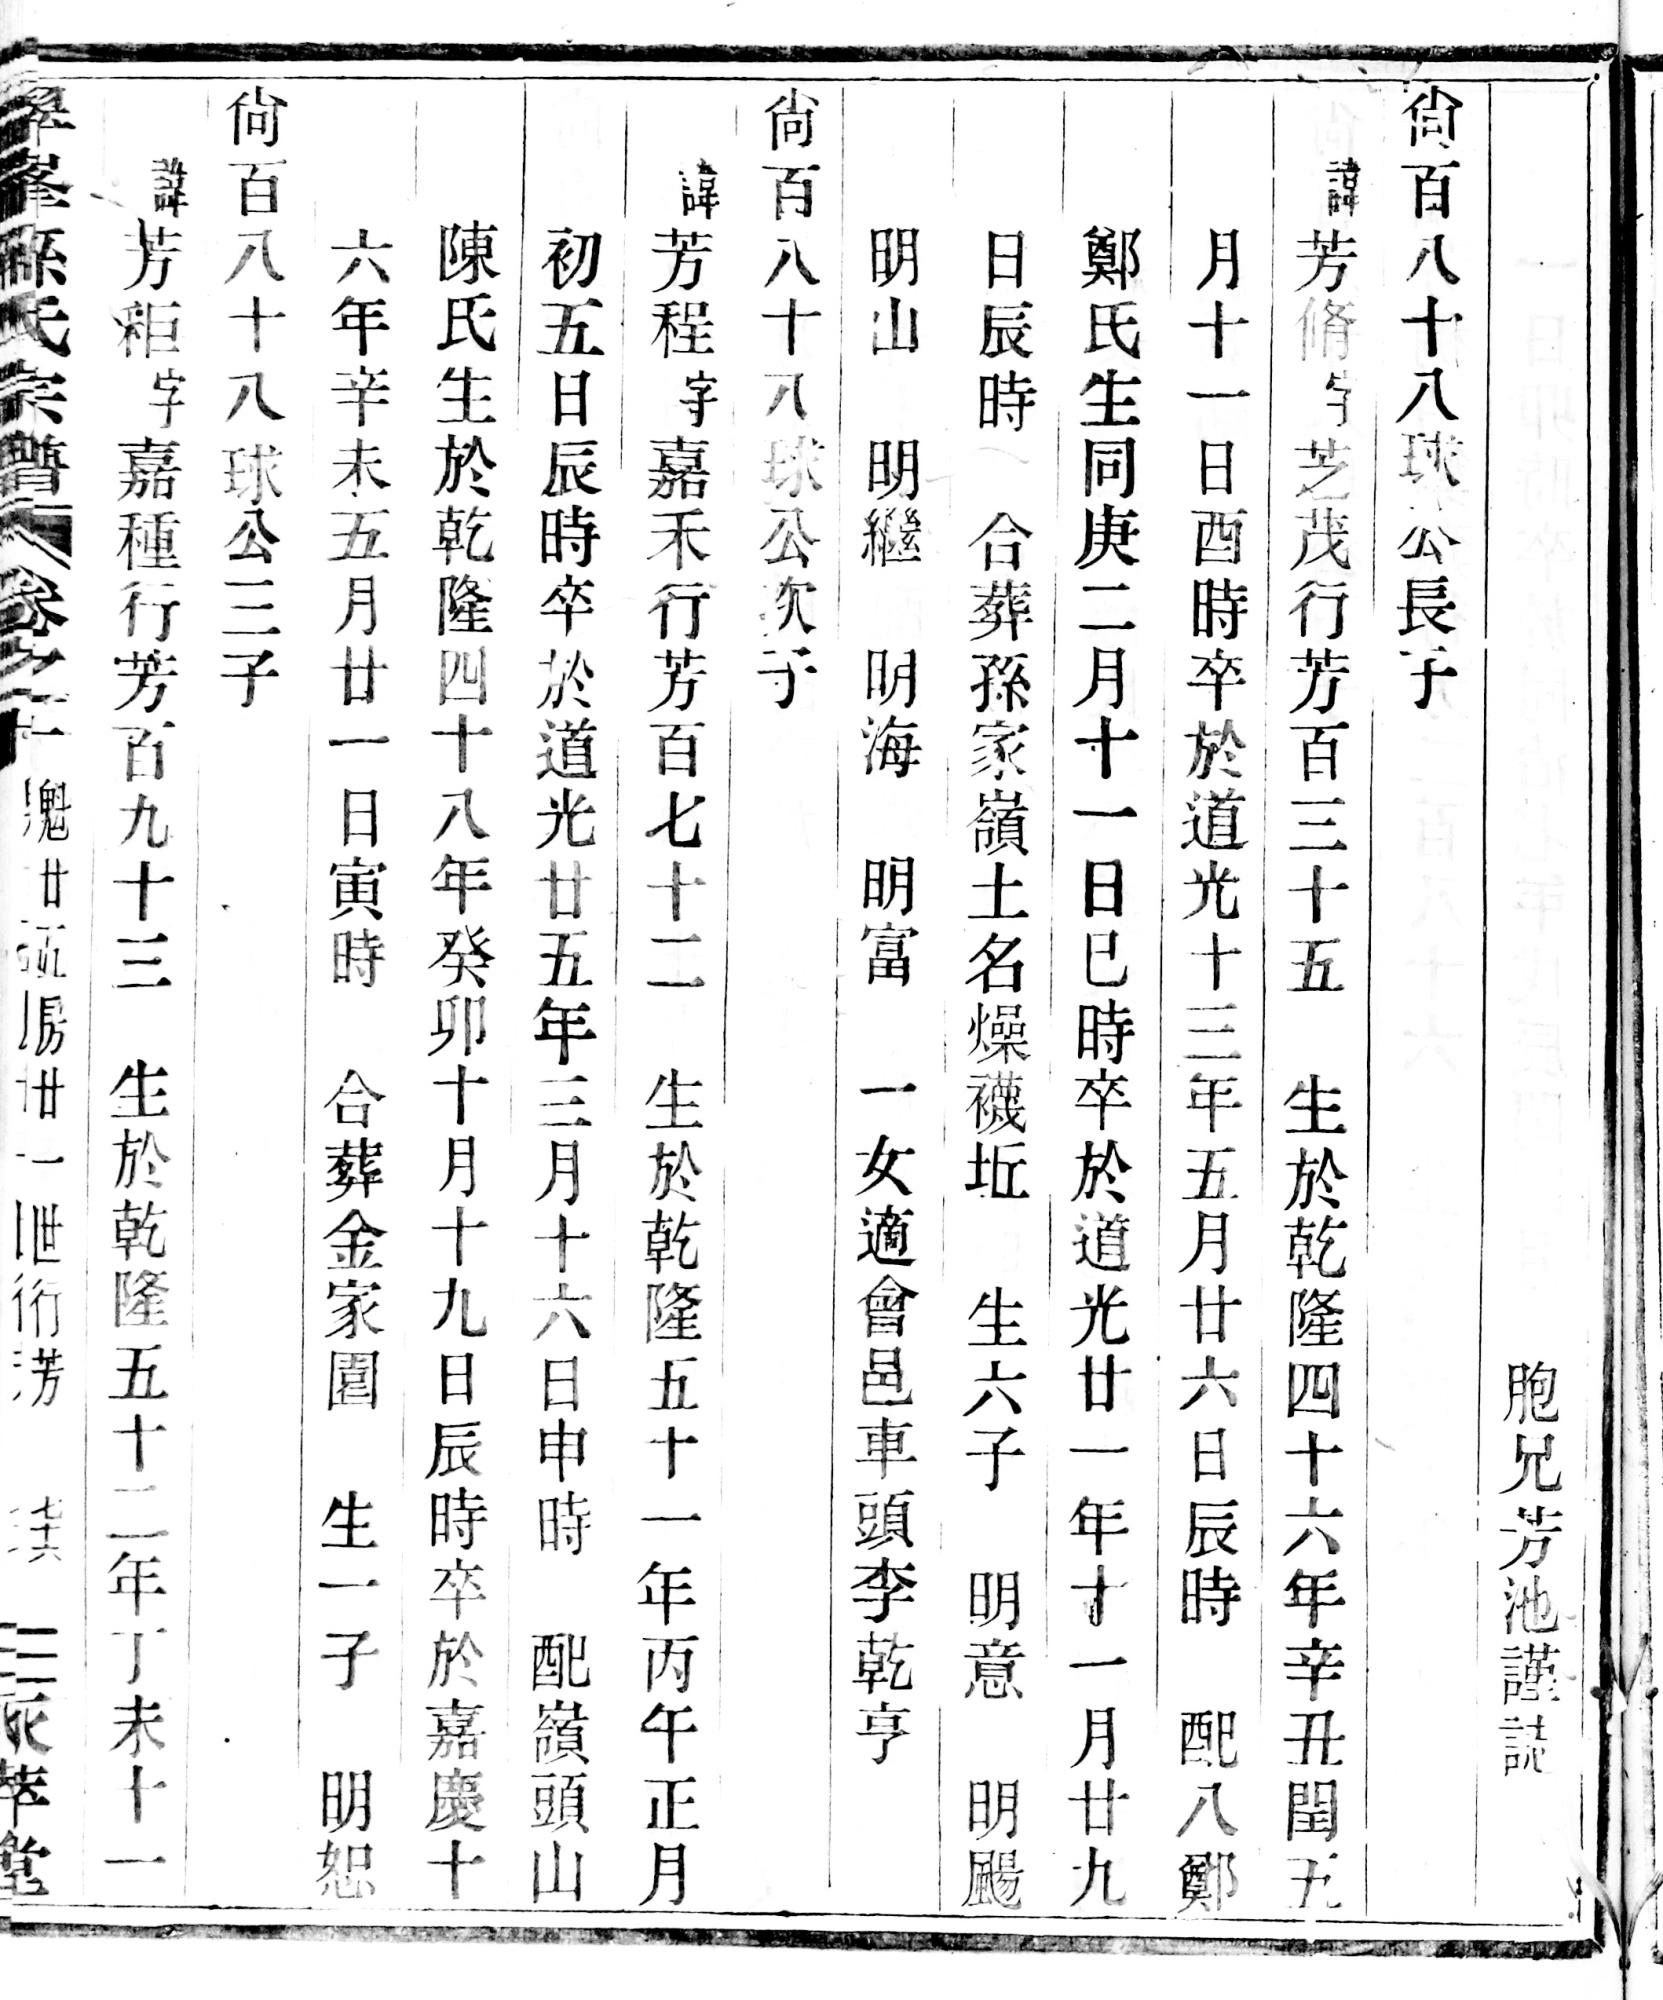 胞兄芳池謹誌
尙百八十八球公長子
諱芳脩字芝茂行芳百三十五 生於乾隆四十六年辛丑閏五
月十一日酉時卒於道光十三年五月廿六日辰時 配八鄭
鄭氏生同庚二月十一日巳時卒於道光廿一年十一月廿九
日辰時 合葬孫家嶺土名燥襪坵 生六子 明意 明颺
明山 明繼 明海 明富 一女適會邑車頭李乾亨
尙百八十八球公次子
諱芳程字嘉禾行芳百七十二 生於乾隆五十一年丙午正月
初五日辰時卒於道光廿五年三月十六日申時 配嶺頭山
陳氏生於乾隆四十八年癸卯十月十九日辰時卒於嘉慶十
六年辛未五月廿一日寅時 合葬金家園 生一子 明恕
尙百八十八球公三子
諱芳秬字嘉種行芳百九十三 生於乾隆五十二年丁未十一
翠峯孫氏宗譜 卷之 房廿一世行芳 萃堂